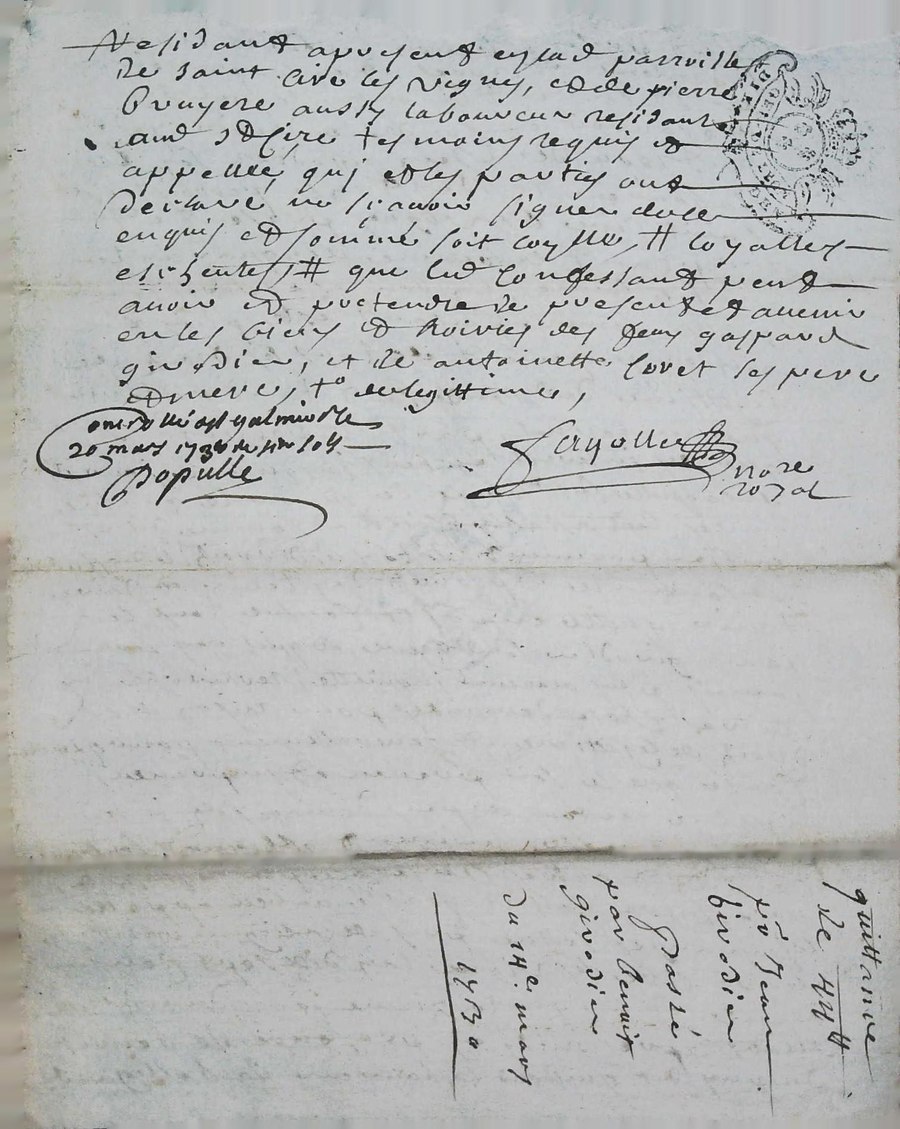 Residant apresent en lad parroisse
de saint Cire les vignes, et de pierre
Bruyere aussy laboureur residant
aud St Cire tesmoins requis et
appellé, qui et les parties ont
declaré ne scavoir signer de ce
enquis et sommé soit # loyalles
# que led Confessant peut
avoir et pretendre de present et avenir
en les biens et hoiries des jeus gaspard
girodier, et de antoinette Coret ses pere
et mere, de legittime,
20 mars
Populle
nore
royal
quittance
de 44#
pr Jean
girodier
Passé
par benoit
girodier
du 14e mars